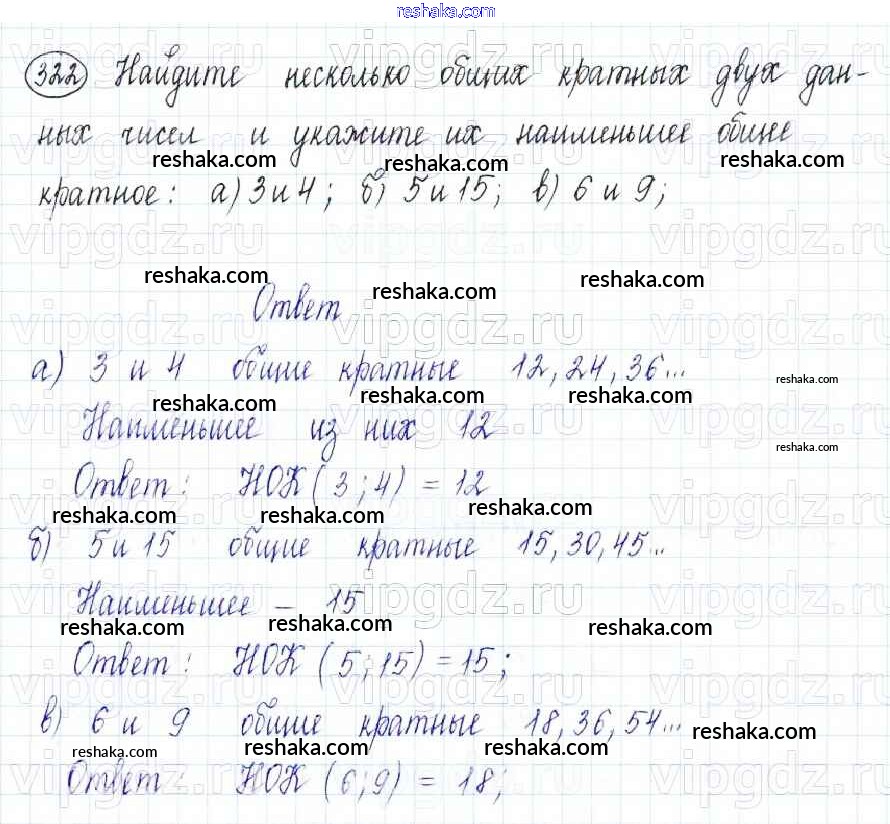 reshaka.com
322 Найдите несколько общих кратных двух дан-
ных чисел и укажите их наименьшее общее
reshaka.com reshaka.com reshaka.com
кратное: а) 3 и 4; б) 5 и 15; в) 6 и 9;
vipgdz.ru vipgdz.ru vipgdz.ru
reshaka.com reshaka.com reshaka.com
Ответ
vipgdz.ru vipgdz.ru vipgdz.ru
а) 3 и 4 общие кратные 12, 24, 36...
reshaka.com
reshaka.com reshaka.com reshaka.com
Наименьшее из них 12
reshaka.com
Ответ: НОК (3; 4) = 12
reshaka.com reshaka.com reshaka.com
б) 5 и 15 общие кратные 15, 30, 45...
Наименьшее – 15
reshaka.com reshaka.com reshaka.com
Ответ: НОК (5; 15) = 15;
в) 6 и 9 общие кратные 18, 36, 54...
reshaka.com reshaka.com reshaka.com reshaka.com
Ответ: НОК (6; 9) = 18;